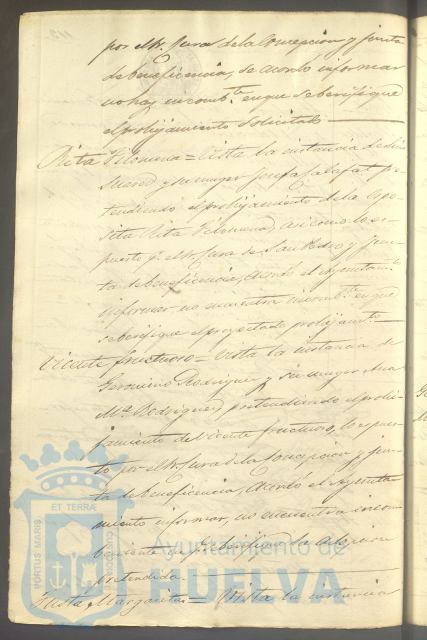 por el Sr. Cura de la Concepcion y junta
de beneficencia, se acordó informar
no hay inconv.te en que se berifique
el prohijamiento solicitado
Rita Filomena = Vista la instancia de
y su muger Josefa pre
tendiendo el prohijamiento de la espo
sita Rita Filomena, asi como lo es
puesto p.r el Sr. Cura de San Pedro y jun
ta de beneficencia, acordó el Ayuntam.to
informar no encuentra inconv.te en que
se berifique el proyectado prohijam.to
Vicente Fructuoso = Vista la instancia de
Geronimo Rodriguez y su muger Ana
M.a Rodriguez, pretendiendo el prohi
jamiento de Vicente Fructuoso, lo espues
to por el Sr. Cura de la Concepcion y jun
ta de beneficencia, acordó el Ayunta
miento informar, no encuentra incon
beniente en q.e se berifique la
pretendida
Justa Margarita = Vista la instancia
PORTUS MARIS ET TERRAE CUSTODIA
Ayuntamiento de
HUELVA